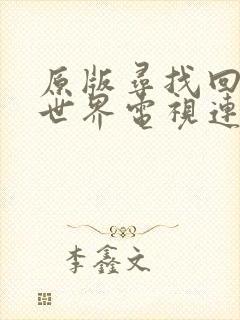 原版尋找回
世界電視連
李鑫文